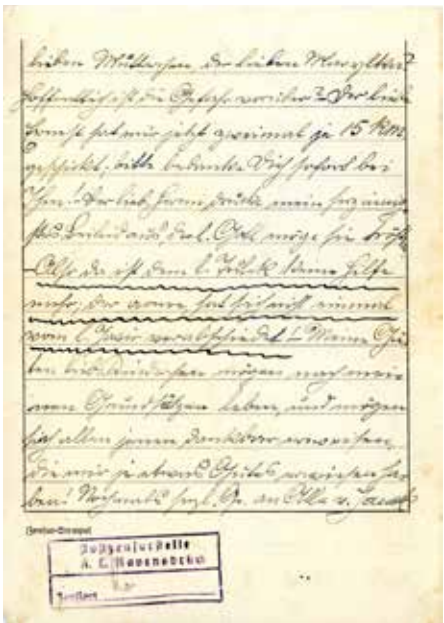 lieben Mütterchen, der lieben
hoffentlich ist die Gefahr vorüber? Der liebe
hat mir jetzt zweimal je 15 Rm
geschickt; bitte bedanke Dich sofort bei
Ihm! Der lieb. drücke mein herzinnig
stes Beileid aus, der l. Gott möge sie
Also da ist dem l. keine Hilfe
mehr, der arme, hat sich nicht einmal
vom l. verabschiedet! Meine Gu
ten lieb. mögen nach mei
nen Grundsätzen leben, und mögen
sich allen jenen dankbar erweisen,
die mir je etwas Gutes erwiesen ha
ben! Nochmals hrzl. Gr. an Alle v.
(Zensur-Stempel)
Postzensurstelle
K. L. Ravensbrück